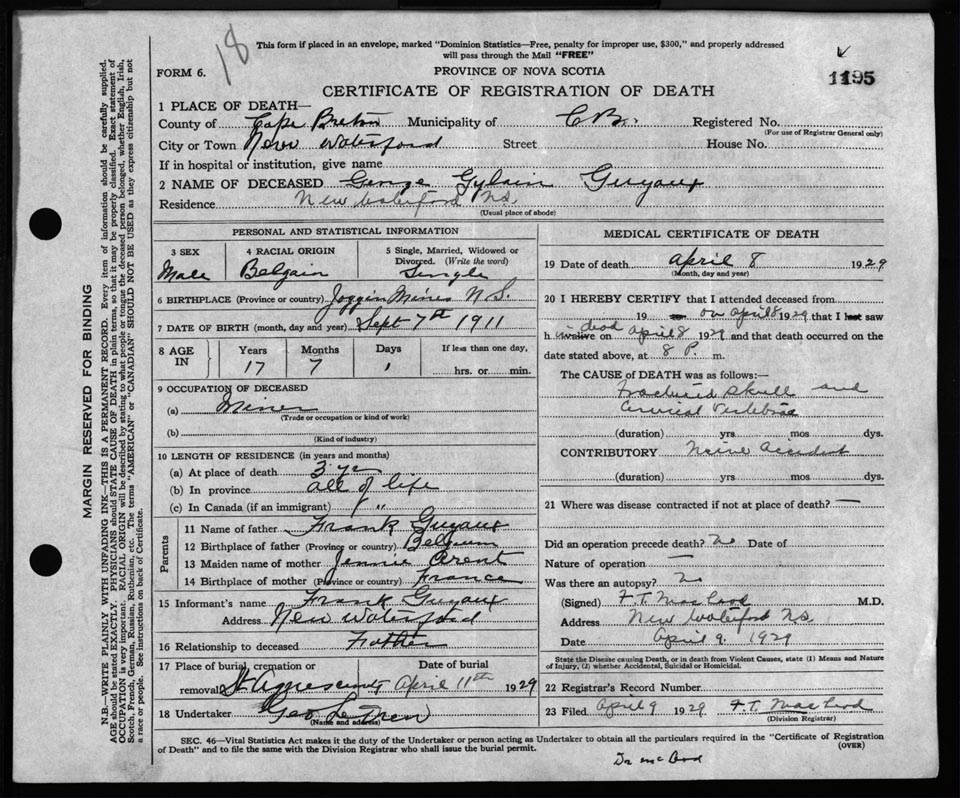 18
This form if placed in an envelope, marked "Dominion Statistics—Free, penalty for improper use, $300," and properly addressed
will pass through the Mail "FREE"
FORM 6.
PROVINCE OF NOVA SCOTIA
1195
CERTIFICATE OF REGISTRATION OF DEATH
1 PLACE OF DEATH—
County of Cape Breton Municipality of C B. Registered No.
(For use of Registrar General only)
City or Town New Waterford Street House No.
If in hospital or institution, give name
2 NAME OF DECEASED George Gylain Guyaux
Residence New Waterford N.S.
(Usual place of abode)
PERSONAL AND STATISTICAL INFORMATION
3 SEX 4 RACIAL ORIGIN 5 Single, Married, Widowed or Divorced. (Write the word)
Male Belgain Single
6 BIRTHPLACE (Province or country) Joggin Mines N S.
7 DATE OF BIRTH (month, day and year) Sept 7th 1911
8 AGE IN Years Months Days If less than one day,
17 7 1 hrs. or min.
9 OCCUPATION OF DECEASED
(a) Miner
(Trade or occupation or kind of work)
(b)
(Kind of industry)
10 LENGTH OF RESIDENCE (in years and months)
(a) At place of death 3 yr
(b) In province all of life
(c) In Canada (if an immigrant) " "
Parents
11 Name of father Frank Guyaux
12 Birthplace of father (Province or country) Belgium
13 Maiden name of mother Jennie Arent
14 Birthplace of mother (Province or country) France
15 Informant's name Frank Guyaux
Address New Waterford
16 Relationship to deceased Father
17 Place of burial, cremation or removal Date of burial
St Agnes April 11th 1929
18 Undertaker Geo
(Name and address)
MEDICAL CERTIFICATE OF DEATH
19 Date of death April 8 1929
(Month, day and year)
20 I HEREBY CERTIFY that I attended deceased from
19 on april 8 1929 that I last saw
h im alive dead on april 8 1929 and that death occurred on the
date stated above, at 8 P. m.
The CAUSE of DEATH was as follows:—
Fractured Skull and
Cervical Vertebrae
(duration) yrs mos dys.
CONTRIBUTORY Mine accident
(duration) yrs mos dys.
21 Where was disease contracted if not at place of death? —
Did an operation precede death? No Date of
Nature of operation —
Was there an autopsy? No
(Signed) F. T. MacLeod M.D.
Address New Waterford N.S.
Date april 9. 1929
State the Disease causing Death, or in death from Violent Causes, state (1) Means and Nature
of Injury, (2) whether Accidental, Suicidal or Homicidal.
22 Registrar's Record Number
23 Filed april 9 1929 F. T. MacLeod
(Division Registrar)
SEC. 46—Vital Statistics Act makes it the duty of the Undertaker or person acting as Undertaker to obtain all the particulars required in the "Certificate of Registration
of Death" and to file the same with the Division Registrar who shall issue the burial permit.
(OVER)
MARGIN RESERVED FOR BINDING
N.B.—WRITE PLAINLY WITH UNFADING INK—THIS IS A PERMANENT RECORD. Every item of information should be carefully supplied.
AGE should be stated EXACTLY. PHYSICIANS should STATE CAUSE OF DEATH in plain terms, so that it may be properly classified. Exact statement of
OCCUPATION is very important. RACIAL ORIGIN will be described by stating to what people or tongue the deceased person belonged, whether English, Irish,
Scotch, French, German, Russian, Ruthenian, etc. The terms "AMERICAN" or "CANADIAN" SHOULD NOT BE USED as they express citizenship but not
a race or people. See instructions on back of Certificate.